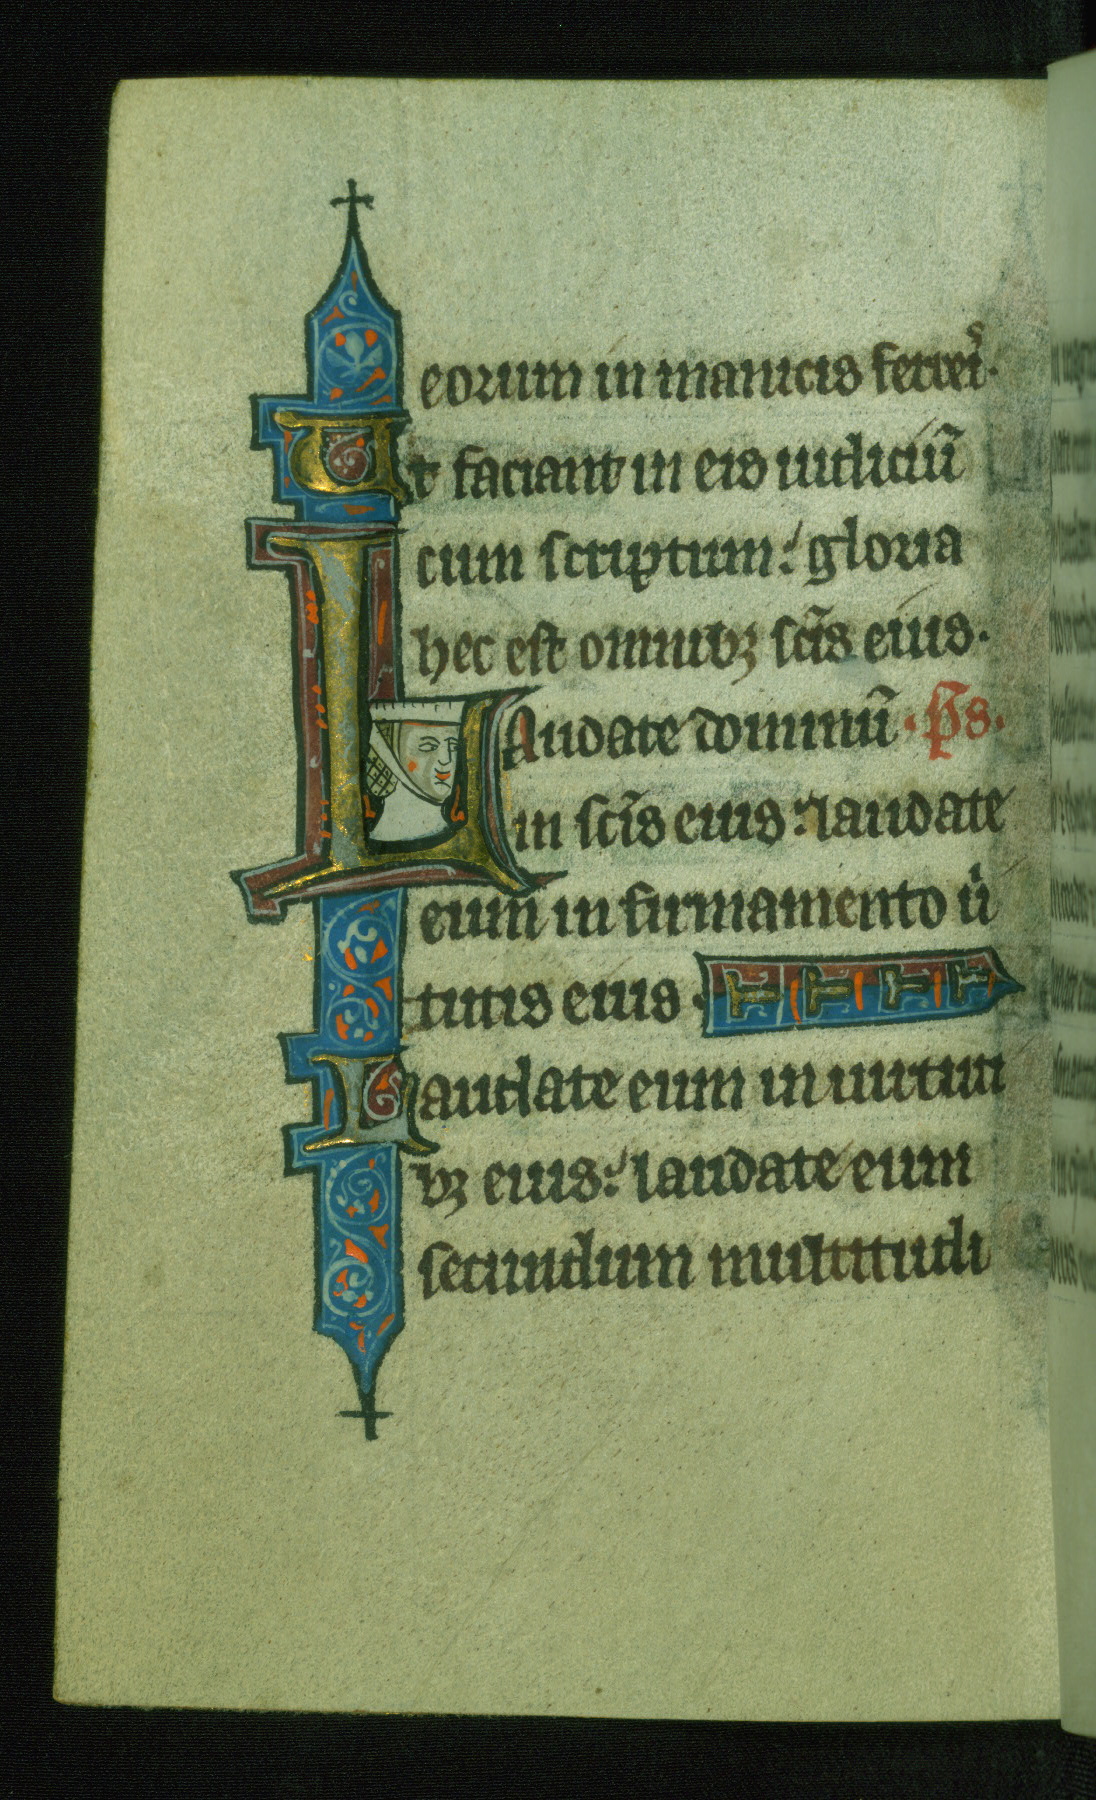 eorum in manicis ferreıˢ.
Ut faciant in eis iudiciū
cum scriptum: gloria
hec est omnibꝫ scīs eius.
Laudate dominū · p̄s.
in scīs eius: laudate
eum in firmamento uͥ
tutis eius.
Laudate eum in uirtuti
bꝫ eius: laudate eum
secundum multitudi